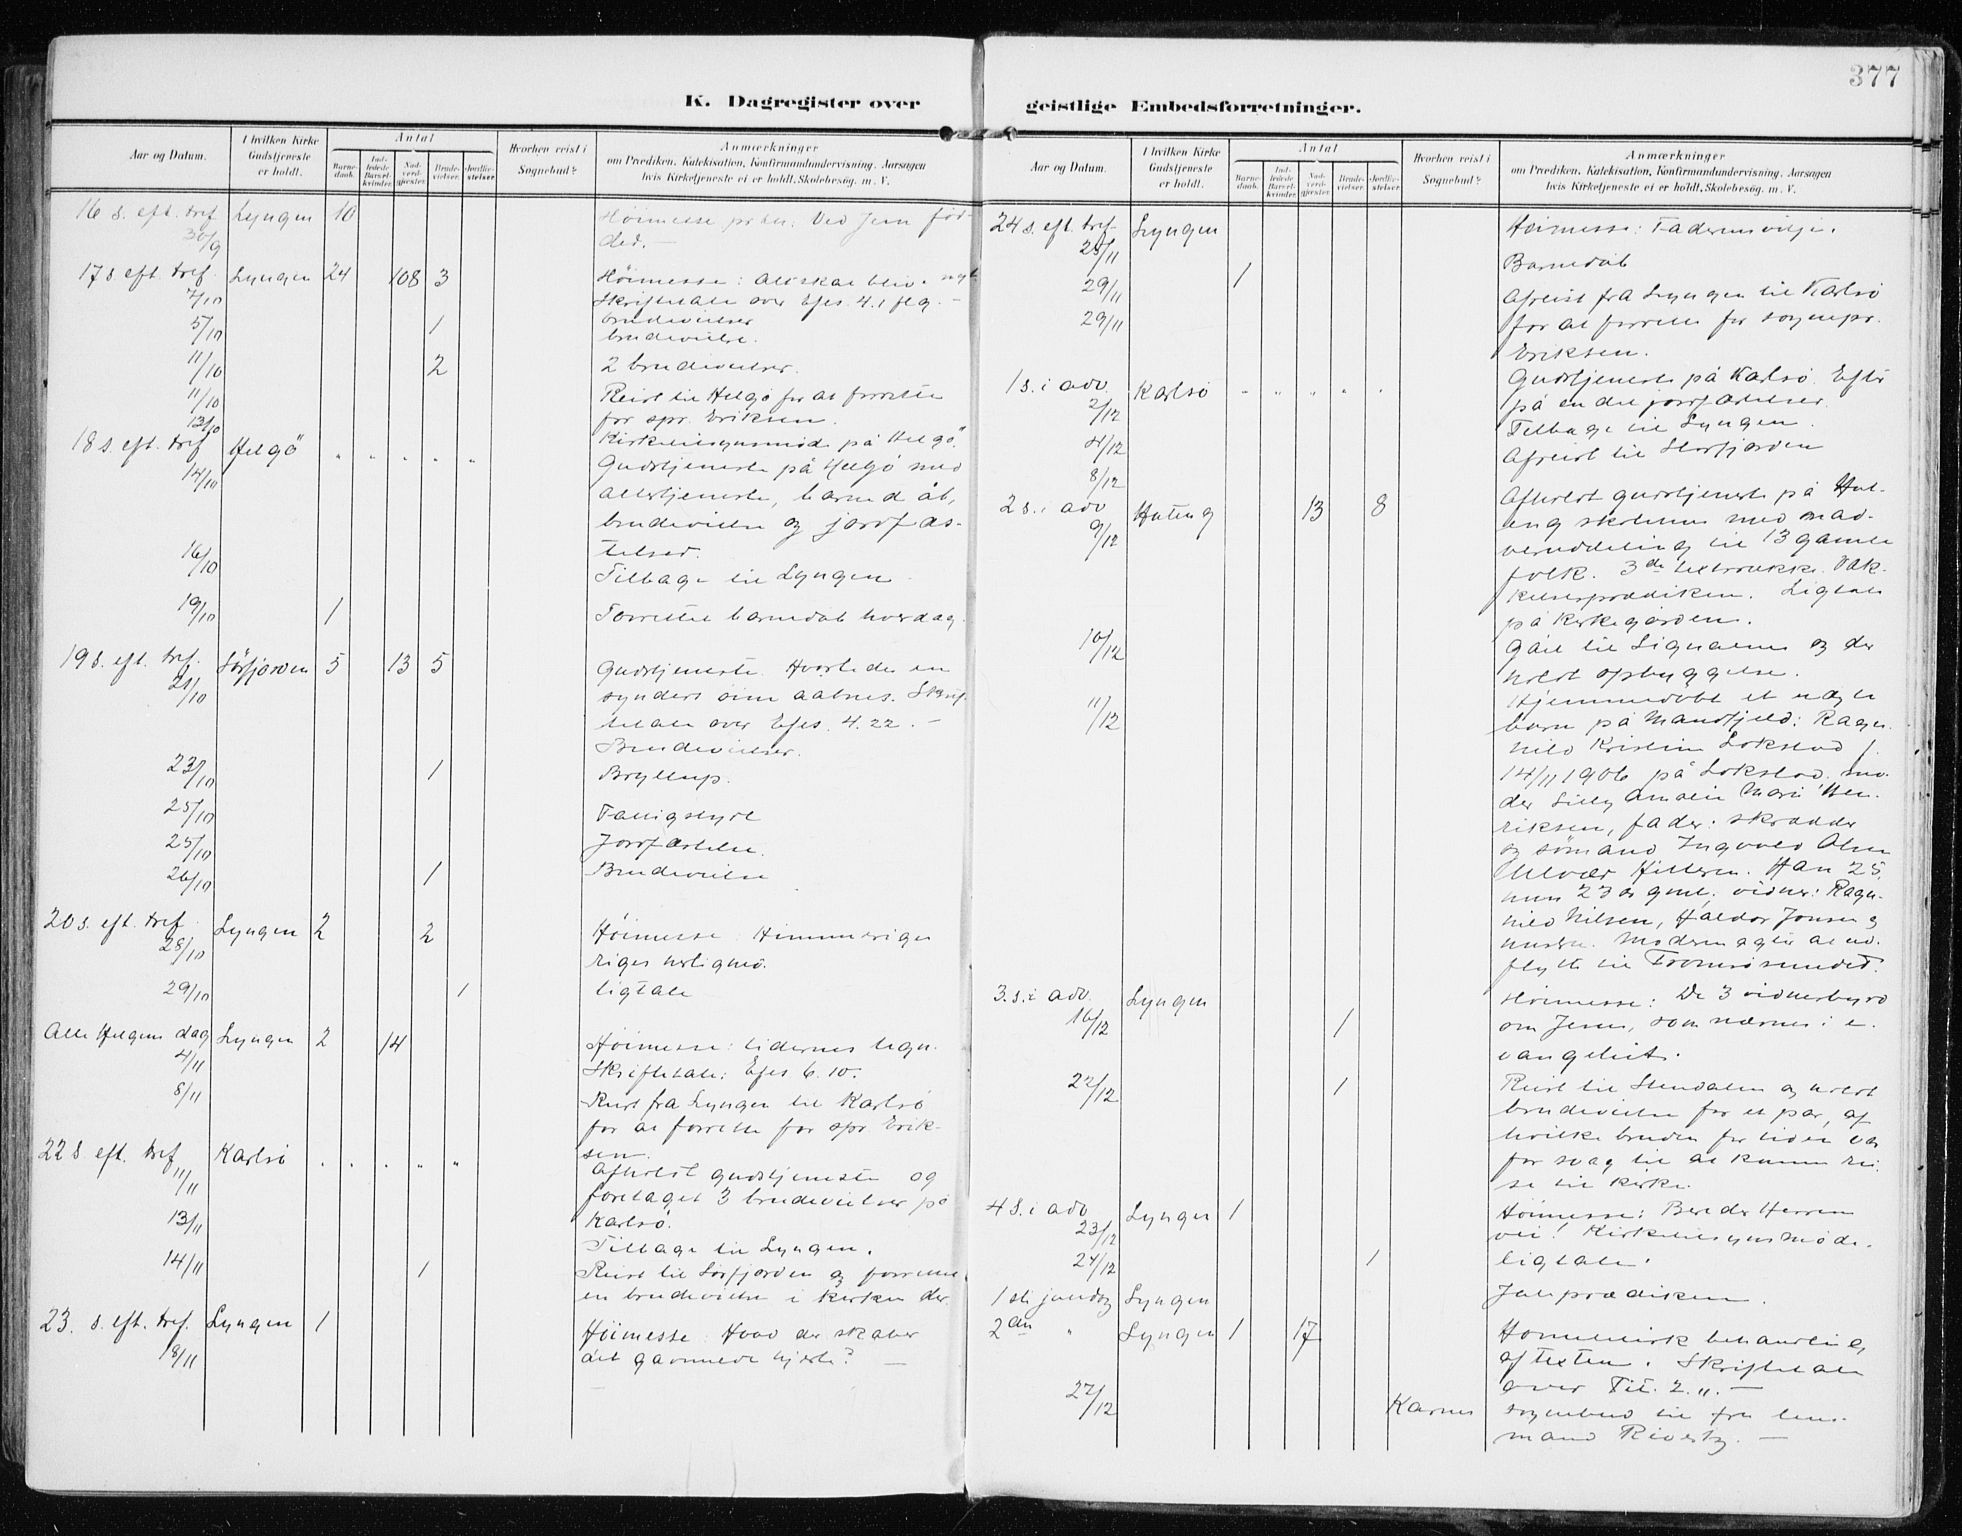 377
K. Dagregister over
geistlige Embedsforretninger.
Aar og Datum.
I hvilken Kirke Gudstjeneste er holdt.
Antal
Barnedaab.
Indledede Barselkvinder.
Nadverdgjester.
Brudevielser.
Jordfæstelser.
Hvorhen reist i Sognebud?
Anmærkninger
om Prædiken, Katekisation, Konfirmandundervisning, Aarsagen
hvis Kirketjeneste ei er holdt, Skolebesøg, m. V.
16 s. eft. tref. Lyngen 10
30/9
Høimesse
17 s eft. tref. Lyngen 24 108 3 Høimesse:
7/10 Skriftetale over Efes. 4.1 flg. -
brudevielser
5/10 1 brudevielse.
11/10 2 2 brudevielser.
11/10 Reist til Helgø for at forrette
for spr. Eriksen.
13/10 Kirketilsynsmøde på Helgø.
18 s. eft. tref Helgö " " " " "
14/10 Gudstjeneste på Helgø med
altertjeneste, barnedåb,
brudevielse og jordfæs-
telser.
16/10 Tilbage til Lyngen.
19/10 1 Forrettet barnedåb hverdag.
19 s. eft. tref. Sørfjorden 5 13 5 Gudstjeneste. Hvorledes en
21/10 synders øine aabnes. Skrif-
tetale over Efes. 4.22. -
Brudevielser.
23/10 1 Bryllup.
25/10 Fattigstyre
25/10 Jordfæstelse.
26/10 1 Brudevielse
20 s. eft. tref. Lyngen 2 2 Høimesse
28/10 riges herlighed.
29/10 1 ligtale
Alle Helgens dag Lyngen 2 14 Høimesse: tidernes tegn.
4/11 Skriftetale: Efes 6.10.
8/11 Reist fra Lyngen til Karlsö
for at forrette for spr. Erik-
sen.
22 s. eft. tref Karlsö " " " " "
11/11 Afholdt gudstjeneste og
foretaget 3 brudevielser på
Karlsö.
13/11 Tilbage til Lyngen.
14/11 1 Reist til Sörfjorden og forrettet
en brudevielse i kirken der.
23. s. eft. tref. Lyngen 1 Høimesse: Hvad der skaber
18/11 det gavmilde hjerte? -
Aar og Datum.
I hvilken Kirke Gudstjeneste er holdt.
Antal
Barnedaab.
Indledede Barselkvinder.
Nadverdgjester.
Brudevielser.
Jordfæstelser.
Hvorhen reist i Sognebud?
Anmærkninger
om Prædiken, Katekisation, Konfirmandundervisning, Aarsagen
hvis Kirketjeneste ei er holdt, Skolebesøg, m. V.
24 s. eft. tref. Lyngen Høimesse: Faderens vilje.
25/11
29/11 1 Barnedåb
29/11 Afreist fra Lyngen til Karlsö
for at forrette for sognepr.
Eriksen.
1 s. i adv Karlsö " " " " " Gudstjeneste på Karlsö.
2/12 på en del jordfæstelser.
4/12 Tilbage til Lyngen.
8/12 Afreist til Storfjorden
2 s. i adv Hateng 13 8 Afholdt gudstjeneste på Hat-
9/12 eng skolehus med nad-
veruddeling til 13 gamle
folk. 3de textrække. Væk-
kelsesprædiken. Ligtale
på kirkegården.
10/12 Gået til Signalnes og der
holdt opbyggelse.
11/12 Hjemmedøbt et uægte
barn på Mandfjeld: Ragn-
hild Kristine Lokstad f.
14/11 1906 på Lokstad. mo-
der Lilly Amalie Marie Hen-
riksen, fader: skrædder
og sømand Ingvald Olsen
Hitteren. Han 25,
hun 23 år gml; vidner: Ragn-
hild Nilsen, Haldor Jonsen og
hustru. Moderen agter at ud-
flytte til Tromsøsundet.
3. s. i adv. Lyngen Høimesse: De 3 vidnesbyrd
16/12 1 om Jesus, som nævnes i e-
vangeliet.
22/12 1 Reist til Stendalen og holdt
brudevielse for et par, af
hvilke bruden for tiden var
for svag til at kunne rei-
se til kirke.
4 s. i adv Lyngen 1 Høimesse: Bered Herren
23/12 vei! Kirketilsynsmøde.
24/12 1 ligtale.
1ste juledag Lyngen Juleprædiken.
2den " Lyngen 1 17 Homiletisk behandling
af texten. Skriftetale
over Tit. 2.11. -
27/12 Karnes sognebud til fru lens-
mand -